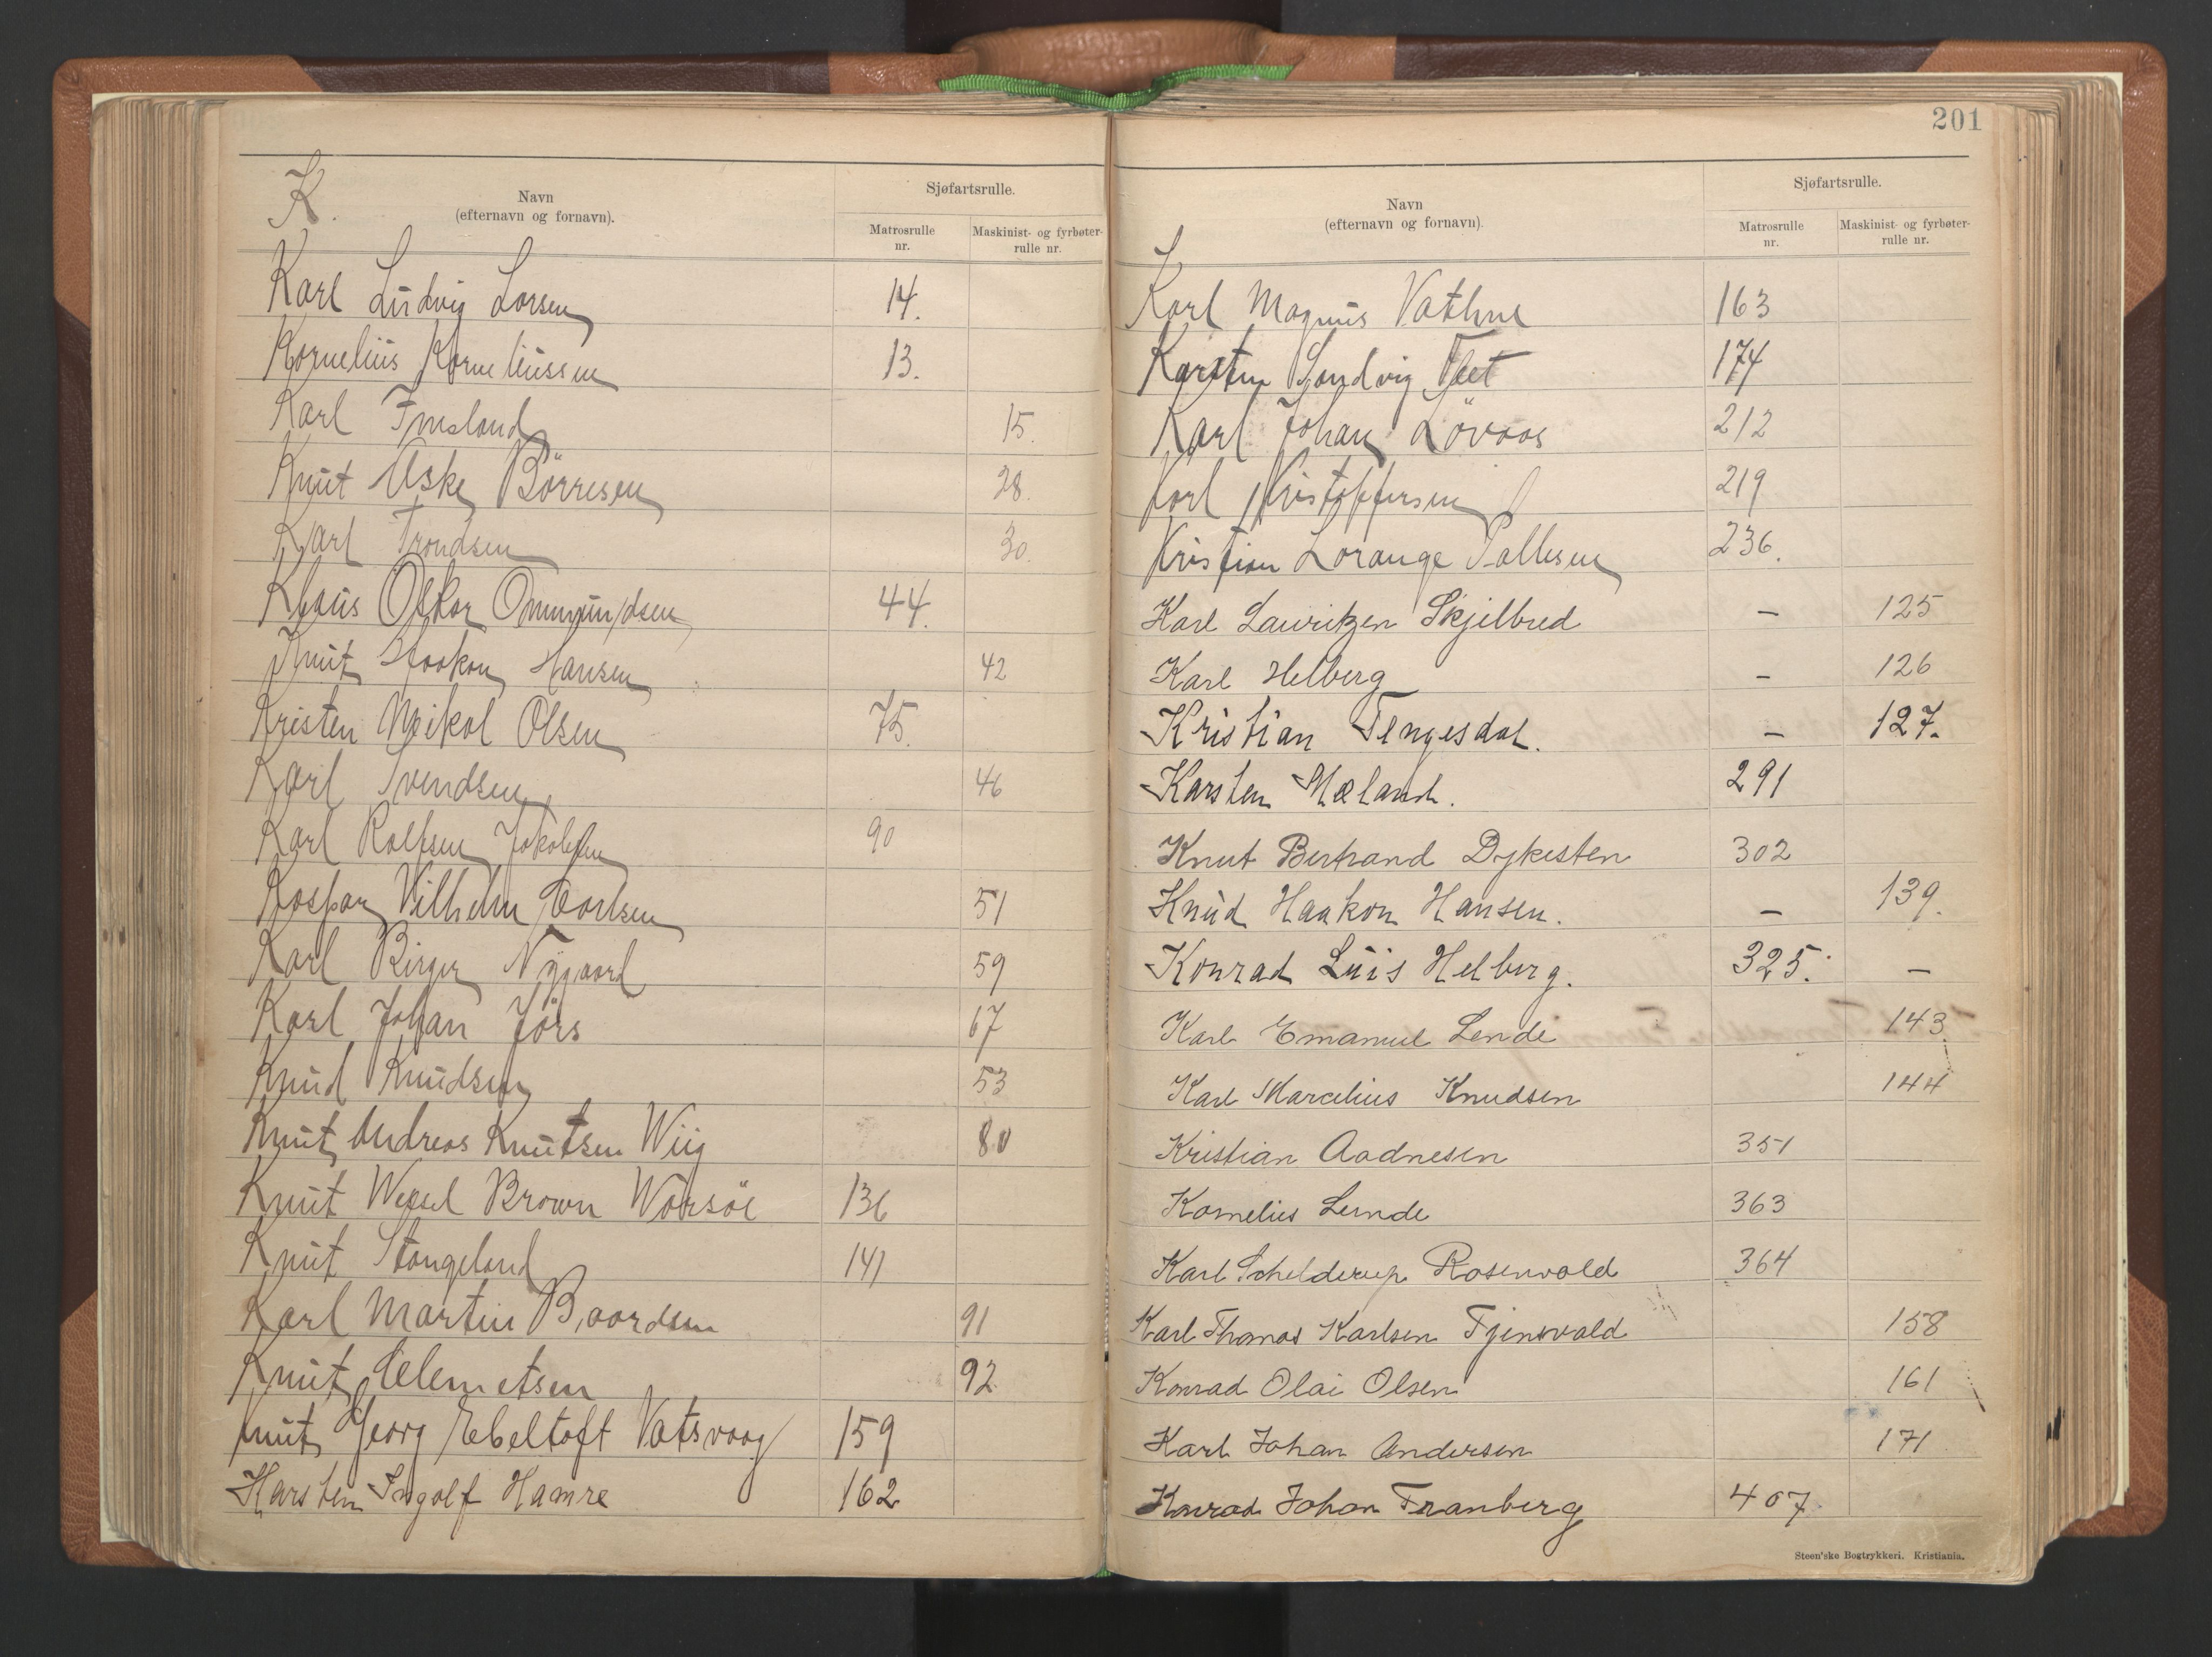 K.
Navn
(efternavn og fornavn).
Sjøfartsrulle.
Matrosrulle
nr.
Maskinist- og fyrbøter-
rulle nr.
Karl Ludvig Larsen 14.
Kornelius Korneliussen 13.
Karl Imsland 15.
Knut Aske Börresen 28.
Karl Trondsen 30.
Klaus Oskar Ommundsen 44.
Knut Haakon Hansen 42
Kristen Meikal Olsen 75.
Karl Svendsen 46
Karl Rolfsen Jakobsen 90
Kaspar Vilhelm Carlsen 51
Karl Birger Nygaard 59
Karl Johan Jörs 67
Knud Knudsen 53
Knut Andreas Knutsen Wiig 80
Knut Wessel Brown Worsöe 136
Knut Stangeland 141
Karl Martin Baardsen 91
Knut Clemetsen 92
Knut Georg Ebeltoft Vatsvaag 159
Karsten Ingolf Hamre 162
201
Navn
(efternavn og fornavn).
Sjøfartsrulle.
Matrosrulle
nr.
Maskinist- og fyrbøter-
rulle nr.
Karl Magnus Vathne 163
Karsten Sandvig 174
Karl Johan Lövaas 212
Karl Kristoffersen 219
Kristian Lorange Pallesen 236.
Karl Lauritzen Skjelbred – 125
Karl Helberg – 126
Kristian Tengesdal. – 127.
Karsten Mæland. 291
Knut Bertrand Dykesten 302
Knud Haakon Hansen. – 139.
Konrad Luis Helberg. 325. –
Karl Emanuel Lende 143
Karl Marcelius Knudsen 144
Kristian Aadnesen 351
Kornelius Lunde 363
Karl Schelderup Rosenvold 364
Karl Thomas Karlsen Tjensvold 158
Konrad Olai Olsen 161
Karl Johan Andersen 171
Konrad Johan Tranberg 407.
Steen'ske Bogtrykkeri. Kristiania.